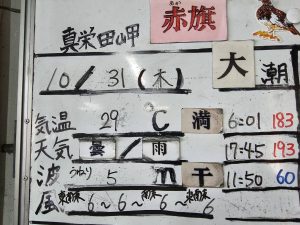 赤旗
真栄田岬
10/31(木) 大潮
気温 29 C 満 6:01 183
天気 曇/雨 17:45 193
波 うねり 5 m 干 11:50 60
風 6~6~6~6